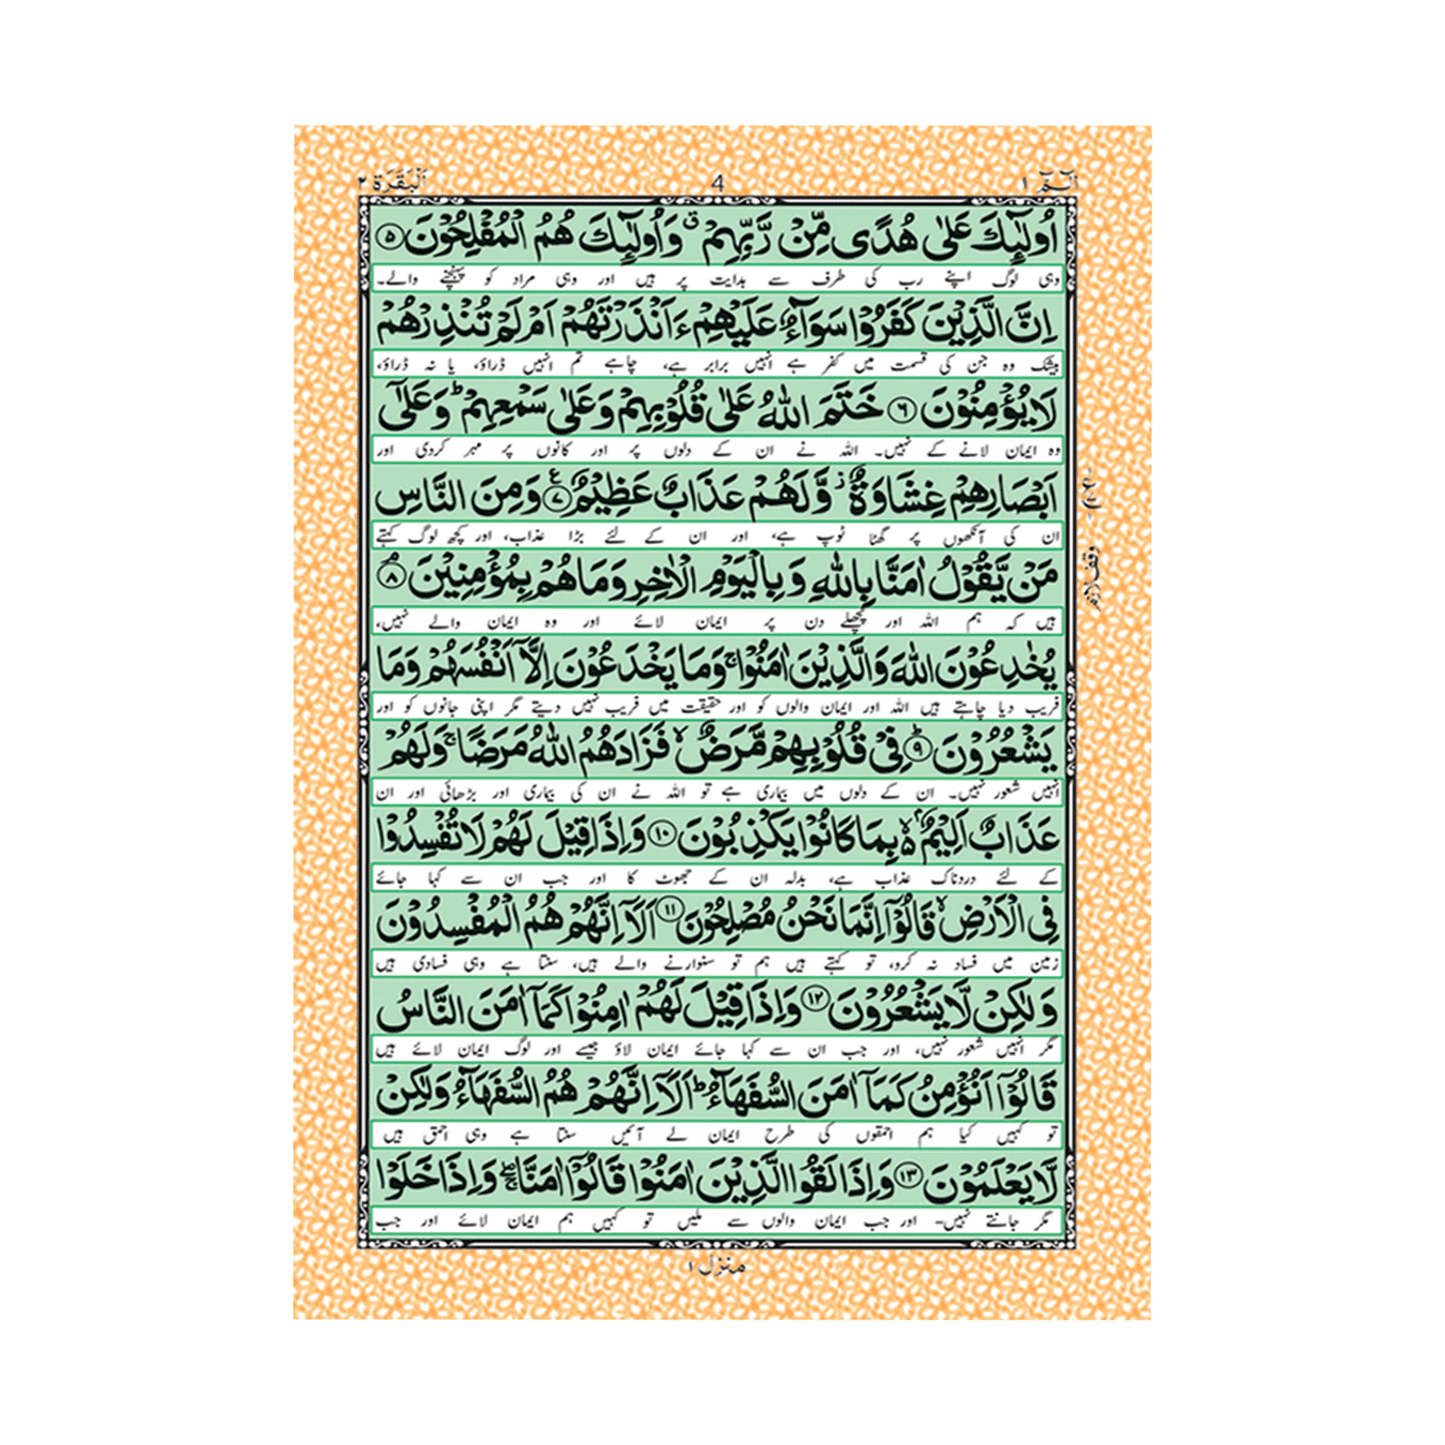 الٓمّٓ ١
4
اَلْبَقَرَة ٢
اُولٰٓئِكَ عَلٰى هُدًى مِّنْ رَّبِّهِمْ ۗ وَاُولٰٓئِكَ هُمُ الْمُفْلِحُوْنَ ۝۵
وہی لوگ اپنے رب کی طرف سے ہدایت پر ہیں اور وہی مراد کو پہنچنے والے۔
اِنَّ الَّذِيْنَ كَفَرُوْا سَوَآءٌ عَلَيْهِمْ ءَاَنْذَرْتَهُمْ اَمْ لَمْ تُنْذِرْهُمْ
بیشک وہ جن کی قسمت میں کفر ہے انہیں برابر ہے، چاہے تم انہیں ڈراؤ، یا نہ ڈراؤ،
لَا يُؤْمِنُوْنَ ۝۶ خَتَمَ اللّٰهُ عَلٰى قُلُوْبِهِمْ وَعَلٰى سَمْعِهِمْ ؕ وَعَلٰٓى
وہ ایمان لانے کے نہیں۔ اللہ نے ان کے دلوں پر اور کانوں پر مہر کردی اور
اَبْصَارِهِمْ غِشَاوَةٌ ؗ وَّلَهُمْ عَذَابٌ عَظِيْمٌ ۝۷ ع وَمِنَ النَّاسِ
ان کی آنکھوں پر گھٹا ٹوپ ہے، اور ان کے لئے بڑا عذاب، اور کچھ لوگ کہتے
مَنْ يَّقُوْلُ اٰمَنَّا بِاللّٰهِ وَبِالْيَوْمِ الْاٰخِرِ وَمَا هُمْ بِمُؤْمِنِيْنَ ۘ۝۸
ہیں کہ ہم اللہ اور پچھلے دن پر ایمان لائے اور وہ ایمان والے نہیں،
يُخٰدِعُوْنَ اللّٰهَ وَالَّذِيْنَ اٰمَنُوْا ۚ وَمَا يَخْدَعُوْنَ اِلَّآ اَنْفُسَهُمْ وَمَا
فریب دیا چاہتے ہیں اللہ اور ایمان والوں کو اور حقیقت میں فریب نہیں دیتے مگر اپنی جانوں کو اور
يَشْعُرُوْنَ ؕ۝۹ فِيْ قُلُوْبِهِمْ مَّرَضٌ ۙ فَزَادَهُمُ اللّٰهُ مَرَضًا ۚ وَلَهُمْ
انہیں شعور نہیں۔ ان کے دلوں میں بیماری ہے تو اللہ نے ان کی بیماری اور بڑھائی اور ان
عَذَابٌ اَلِيْمٌۢ ۙ۬ بِمَا كَانُوْا يَكْذِبُوْنَ ۝۱۰ وَاِذَا قِيْلَ لَهُمْ لَا تُفْسِدُوْا
کے لئے دردناک عذاب ہے، بدلہ ان کے جھوٹ کا اور جب ان سے کہا جائے
فِي الْاَرْضِ ۙ قَالُوْٓا اِنَّمَا نَحْنُ مُصْلِحُوْنَ ۝۱۱ اَلَآ اِنَّهُمْ هُمُ الْمُفْسِدُوْنَ
زمین میں فساد نہ کرو، تو کہتے ہیں ہم تو سنوارنے والے ہیں، سنتا ہے وہی فسادی ہیں
وَلٰكِنْ لَّا يَشْعُرُوْنَ ۝۱۲ وَاِذَا قِيْلَ لَهُمْ اٰمِنُوْا كَمَآ اٰمَنَ النَّاسُ
مگر انہیں شعور نہیں، اور جب ان سے کہا جائے ایمان لاؤ جیسے اور لوگ ایمان لائے ہیں
قَالُوْٓا اَنُؤْمِنُ كَمَآ اٰمَنَ السُّفَهَآءُ ؕ اَلَآ اِنَّهُمْ هُمُ السُّفَهَآءُ وَلٰكِنْ
تو کہیں کیا ہم احمقوں کی طرح ایمان لے آئیں سنتا ہے وہی احمق ہیں
لَّا يَعْلَمُوْنَ ۝۱۳ وَاِذَا لَقُوا الَّذِيْنَ اٰمَنُوْا قَالُوْٓا اٰمَنَّا ۖۚ وَاِذَا خَلَوْا
مگر جانتے نہیں۔ اور جب ایمان والوں سے ملیں تو کہیں ہم ایمان لائے اور جب
منزل ١